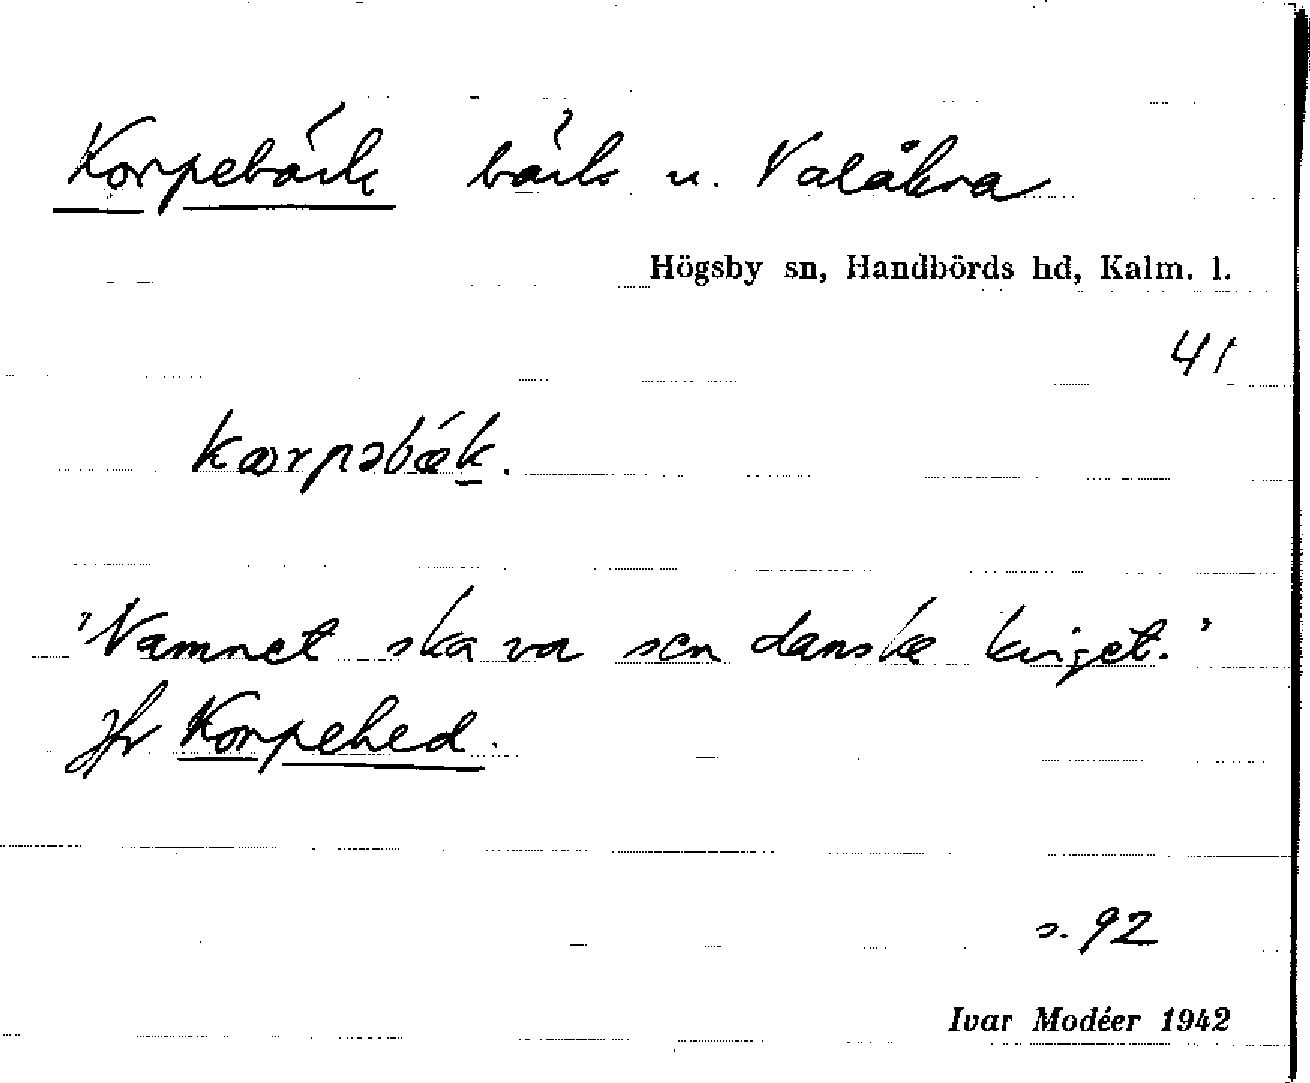 Korpebäck bäck u. Valåkra
Högsby sn, Handbörds hd, Kalm. l.
41
kærpəbæk.
'Namnet ska va sen danske kriget.'
Jfr Korpehed.
s. 92
Ivar Modéer 1942